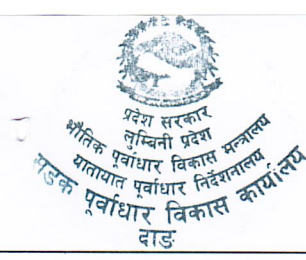 प्रदेश सरकार
लुम्बिनी प्रदेश
भौतिक पूर्वाधार विकास मन्त्रालय
यातायात पूर्वाधार निर्देशनालय
सडक पूर्वाधार विकास कार्यालय
दाङ